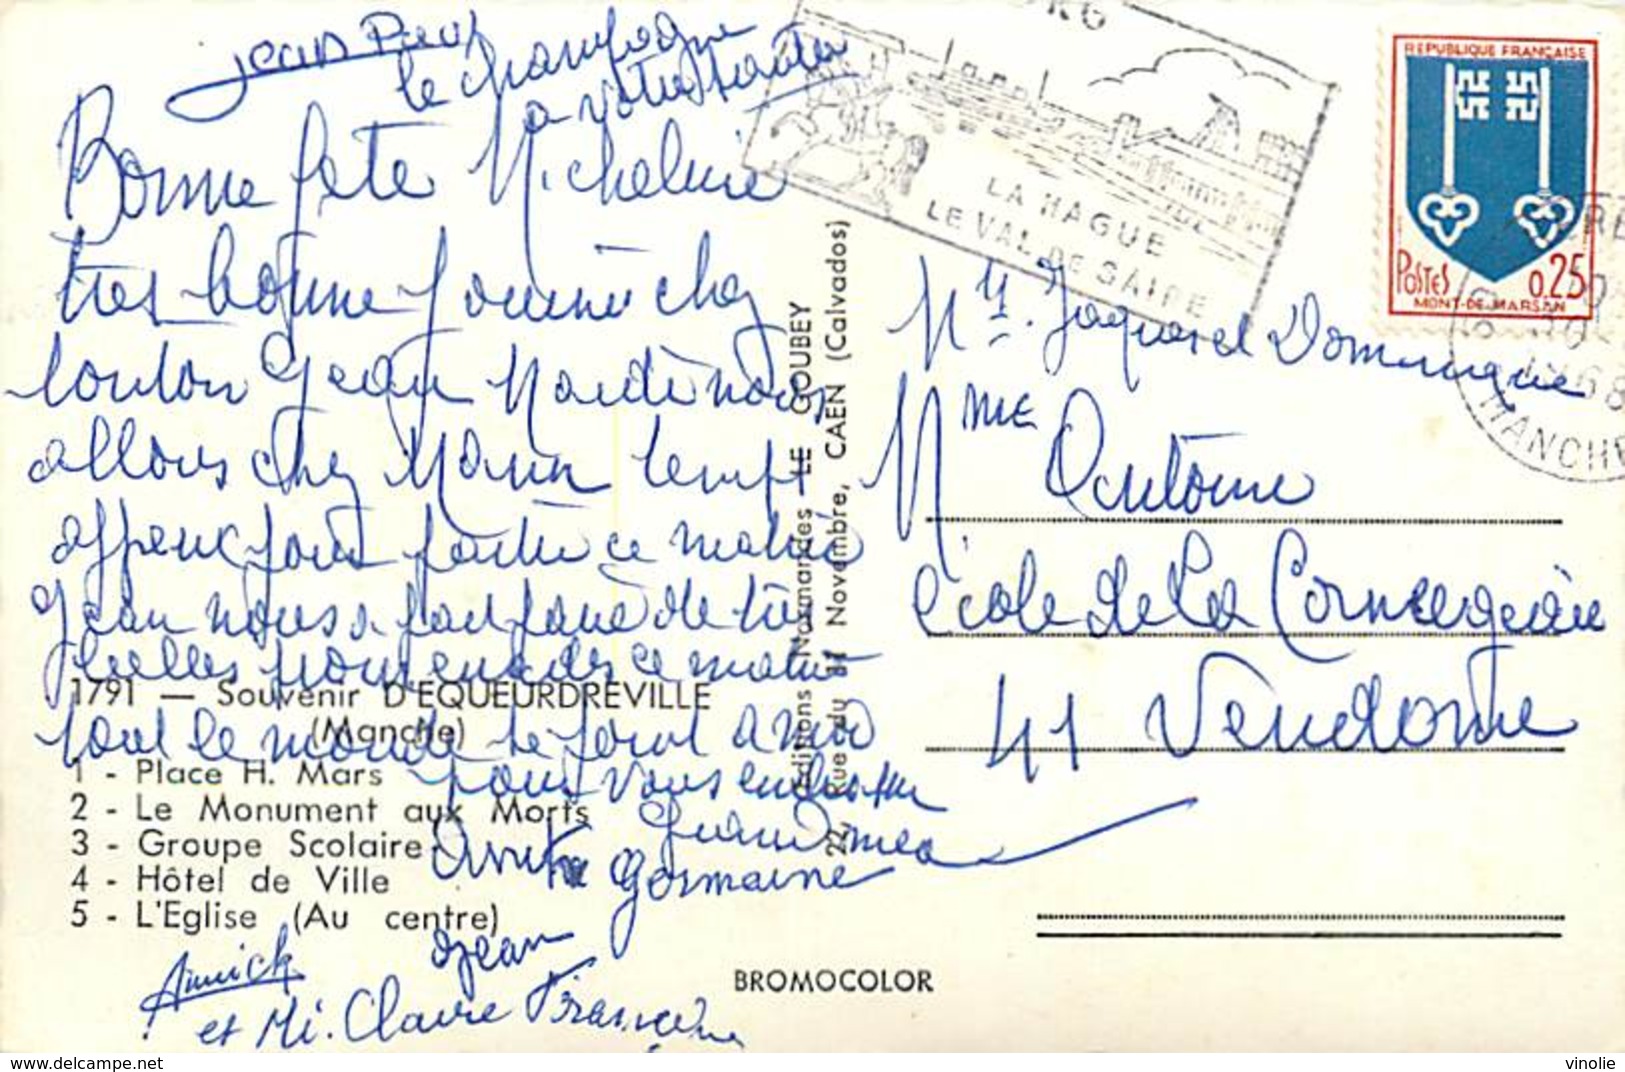 Jean Paul
le champagne
a votre santé
Bonne fête Micheline
très bonne journée chez
tonton Jean Mardi nous
allons chez Mann temps
affreux pour partir ce matin
Jean nous a fait faire de très
belles promenades ce matin
tout le monde se joint a moi
pour vous embrasser
Grandmea
Germaine
Jean
Annick
et Mi. Claire Francine
1791 — Souvenir D'EQUEURDREVILLE
(Manche)
1 - Place H. Mars
2 - Le Monument aux Morts
3 - Groupe Scolaire
4 - Hôtel de Ville
5 - L'Eglise (Au centre)
Editions Normandes LE GOUBEY
22, Rue du 11 Novembre, CAEN (Calvados)
BROMOCOLOR
LA HAGUE
LE VAL DE SAIRE
REPUBLIQUE FRANÇAISE
POSTES 0,25
MONT-DE-MARSAN
1968
MANCHE
Dominique
Mme Antoine
école de la
41 Vendome
vinolie